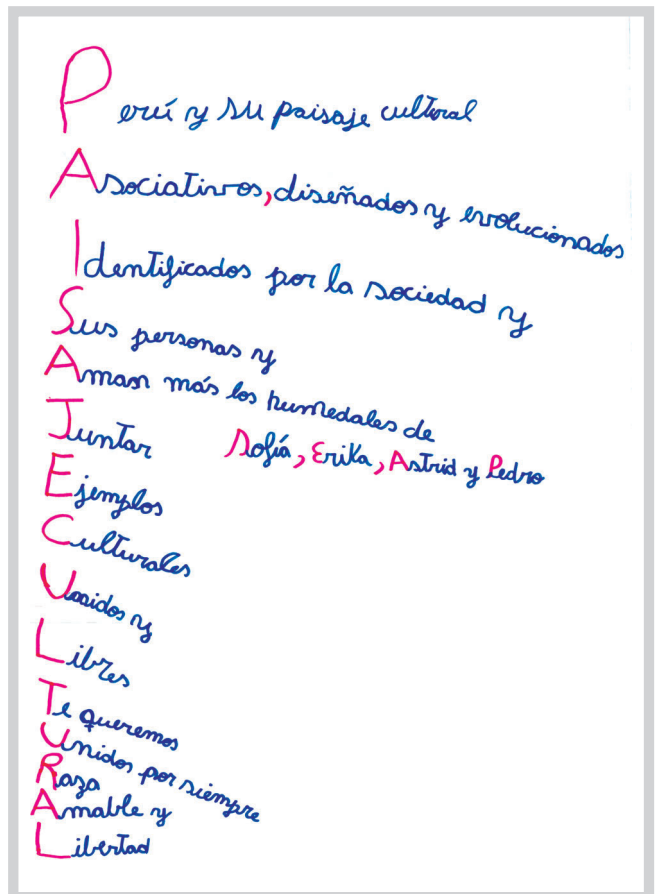 Perú y su paisaje cultural
Asociativos, diseñados y evolucionados
Identificados por la sociedad y
Sus personas y
Aman más los humedales de
Juntar Sofía, Erika, Astrid y Pedro
Ejemplos
Culturales
Unidos y
Libres
Te queremos
Unidos por siempre
Raza
Amable y
Libertad